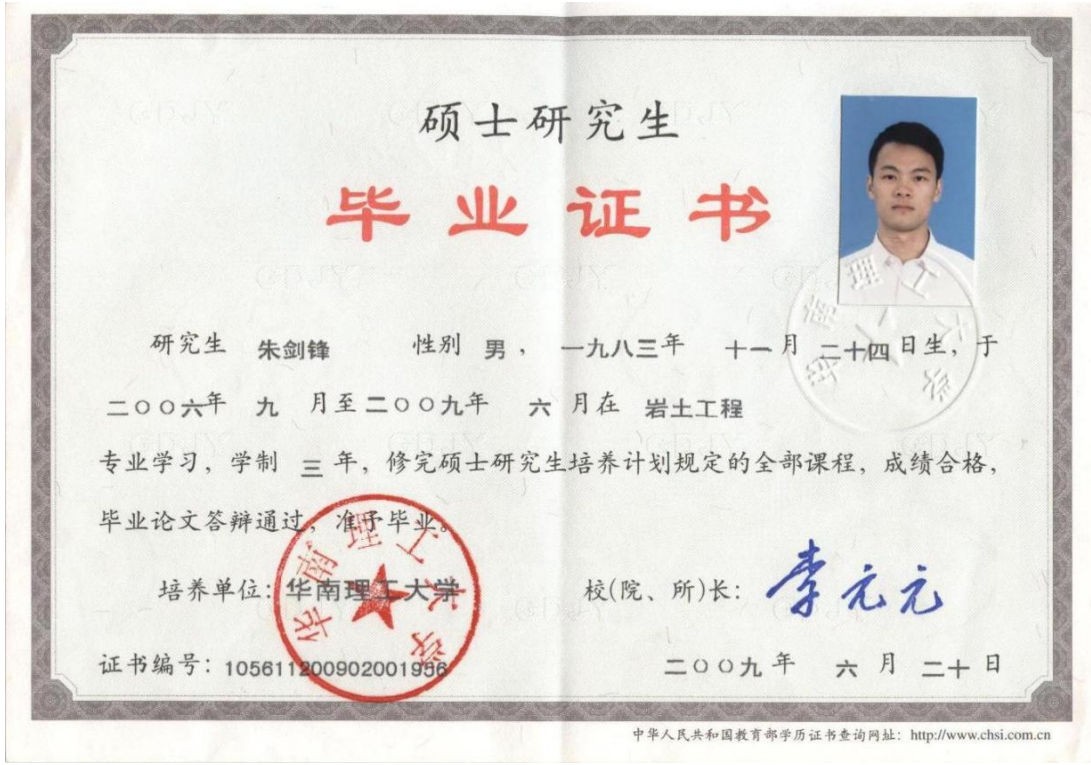 硕士研究生
毕业证书
研究生 朱剑锋 性别 男， 一九八三年 十一月 二十四日生，于
二〇〇六年 九 月至二〇〇九年 六 月在 岩土工程
专业学习，学制 三 年，修完硕士研究生培养计划规定的全部课程，成绩合格，
毕业论文答辩通过，准予毕业。
培养单位：华南理工大学
校(院、所)长：李元元
证书编号：105611200902001956
二〇〇九年 六 月 二十 日
中华人民共和国教育部学历证书查询网址：http://www.chsi.com.cn
华南理工大学
华南理工大学